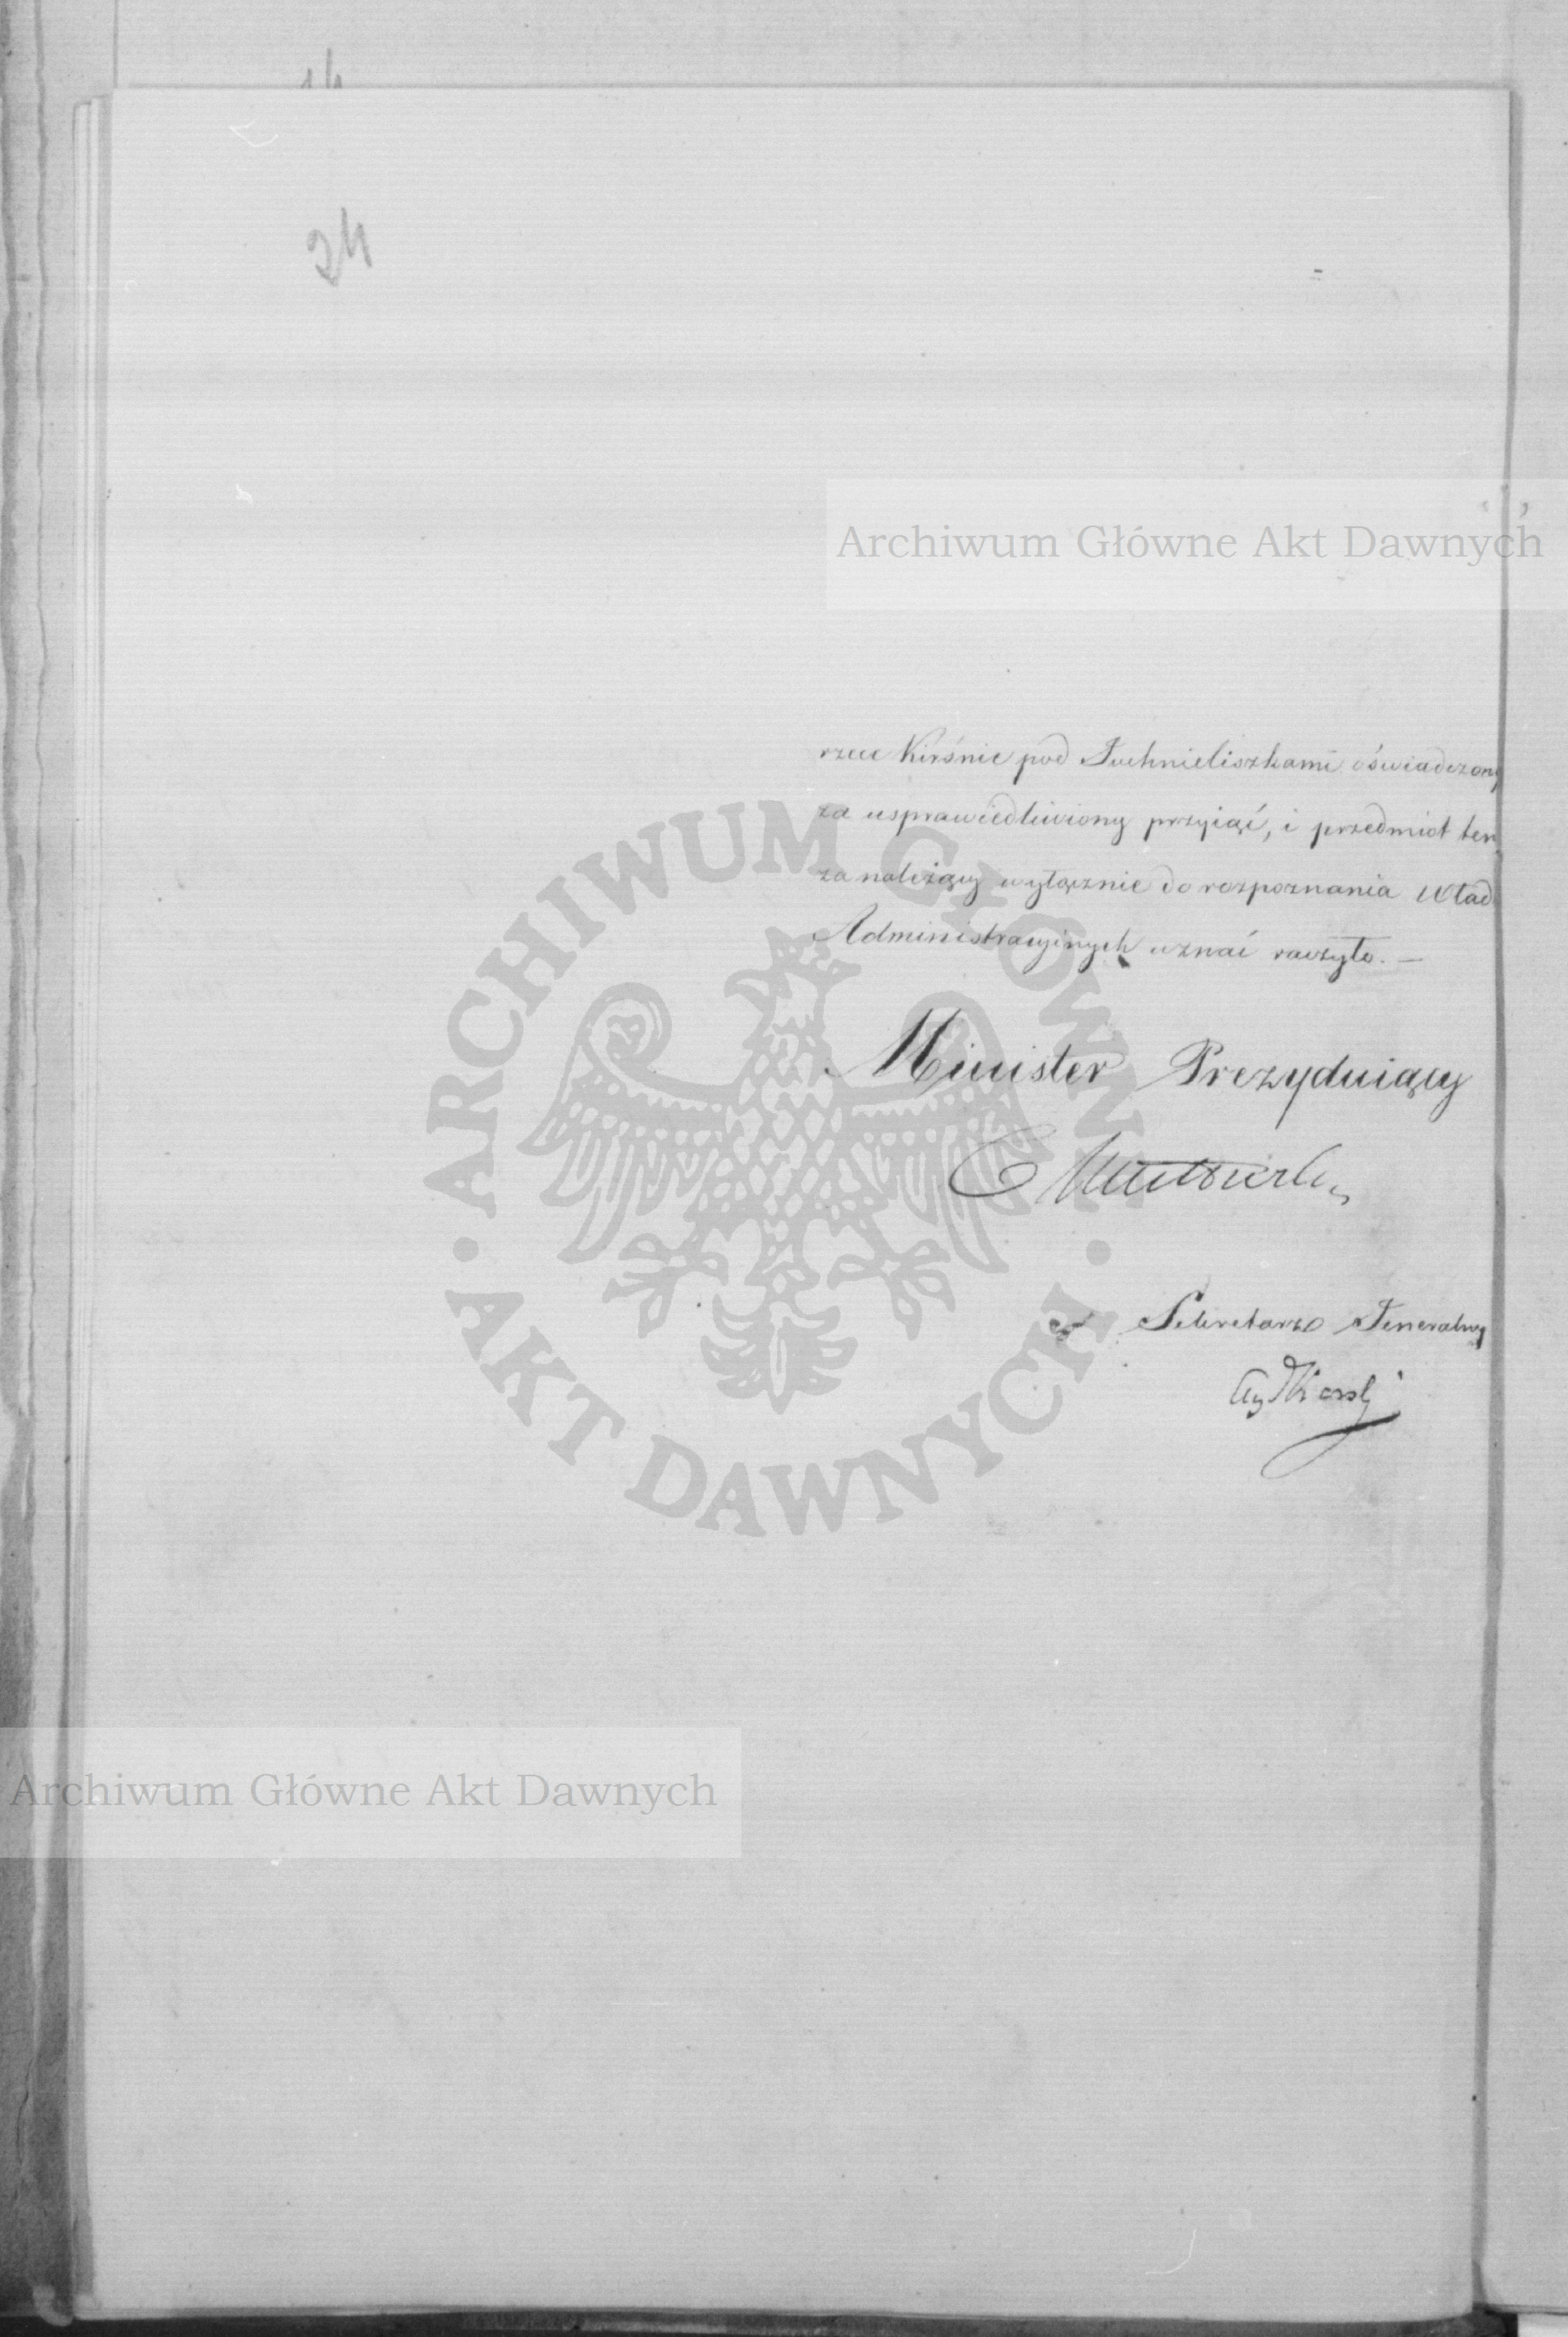 24
Archiwum Główne Akt Dawnych
rzece Kirśnie pod Juchnieliszkami oświadczony
za usprawiedliwiony przyiąć, i przedmiot ten
za należący wyłącznie do rozpoznania Wład
Administracyinych uznać raczyło. —
Minister Prezyduiący
Sekretarz Jeneralny
ARCHIWUM GŁÓWNE
AKT DAWNYCH
Archiwum Główne Akt Dawnych